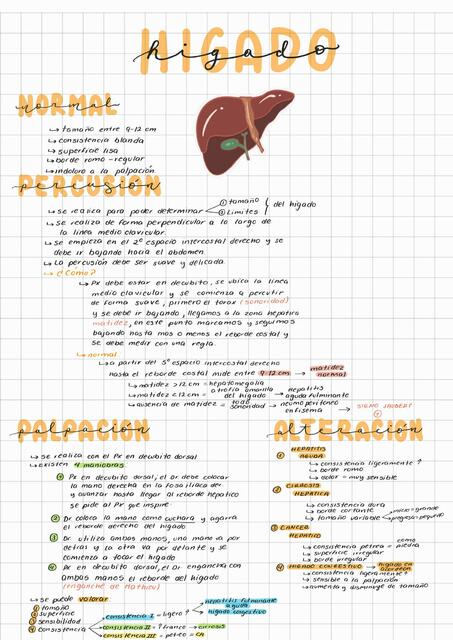 HIGADO
higado
NORMAL
↳ tamaño entre 9-12 cm
↳ consistencia blanda
↳ superficie lisa
↳ borde romo - regular
↳ indoloro a la palpación.
PERCUSIÓN
↳ se realiza para poder determinar ① tamaño ② Limites } del higado
↳ se realiza de forma perpendicular a lo largo de
la linea medio clavicular.
↳ se empieza en el 2º espacio intercostal derecho y se
debe ir bajando hacia el abdomen.
↳ La percusión debe ser suave y delicada.
↳ ¿Como?
↳ Px debe estar en decubito, se ubica la linea
medio clavicular y se comienza a percutir
de forma suave, primero el torax (sonoridad)
y se debe ir bajando, llegamos a la zona hepatica
matidez, en este punto marcamos y seguimos
bajando hasta mas o menos el reborde costal y
se debe medir con una regla.
↳ normal
↳ a partir del 5º espacio intercostal derecho
hasta el reborde costal mide entre 9-12 cm → matidez normal
↳ matidez >12 cm = hepatomegalia
↳ matidez <12 cm = atrofia amarilla del higado → hepatitis aguda fulminante
↳ ausencia de matidez = todo sonoridad → neumo peritoneo
enfisema → SIGNO JAUBERT
PALPACIÓN
↳ se realiza con el Px en decubito dorsal
↳ existen 4 maniobras
① Px en decubito dorsal, el Dr debe colocar
la mano derecha en la fosa iliaca der
y avanzar hasta llegar al reborde hepatico
se pide al Px que inspire.
② Dr coloca la mano como cuchara y agarra
el reborde derecho del higado.
③ Dr utiliza ambas manos, una mano va por
detras y la otra va por delante y se
comienza a todar el higado
④ Px en decubito dorsal, el Dr engancha con
ambas manos el reborde del higado
(enganche de Mathieu)
↳ se puede valorar
① tamaño
② superficie
③ sensibilidad
④ consistencia
consistencia I = ligero ↑ → hepatitis fulminante aguda
higado congestivo
consistencia II = ↑ franco → cirrosis
consistencia III = petreo = CA
ALTERACIÓN
① HEPATITIS
AGUDA
↳ consistencia ligeramente ↑
↳ borde romo
↳ dolor = muy sensible
② CIRROSIS
HEPATICA
↳ consistencia dura
↳ borde cortante
↳ tamaño variable → inicio = grande
→ progresa = pequeño
③ CANCER
HEPATICO
↳ consistencia petrea = como piedra
↳ superficie irregular
↳ borde irregular
④ HIGADO CONGESTIVO → higado en acordeon
↳ consistencia ligeramente ↑
↳ sensible a la palpación
↳ aumento y disminuye de tamaño